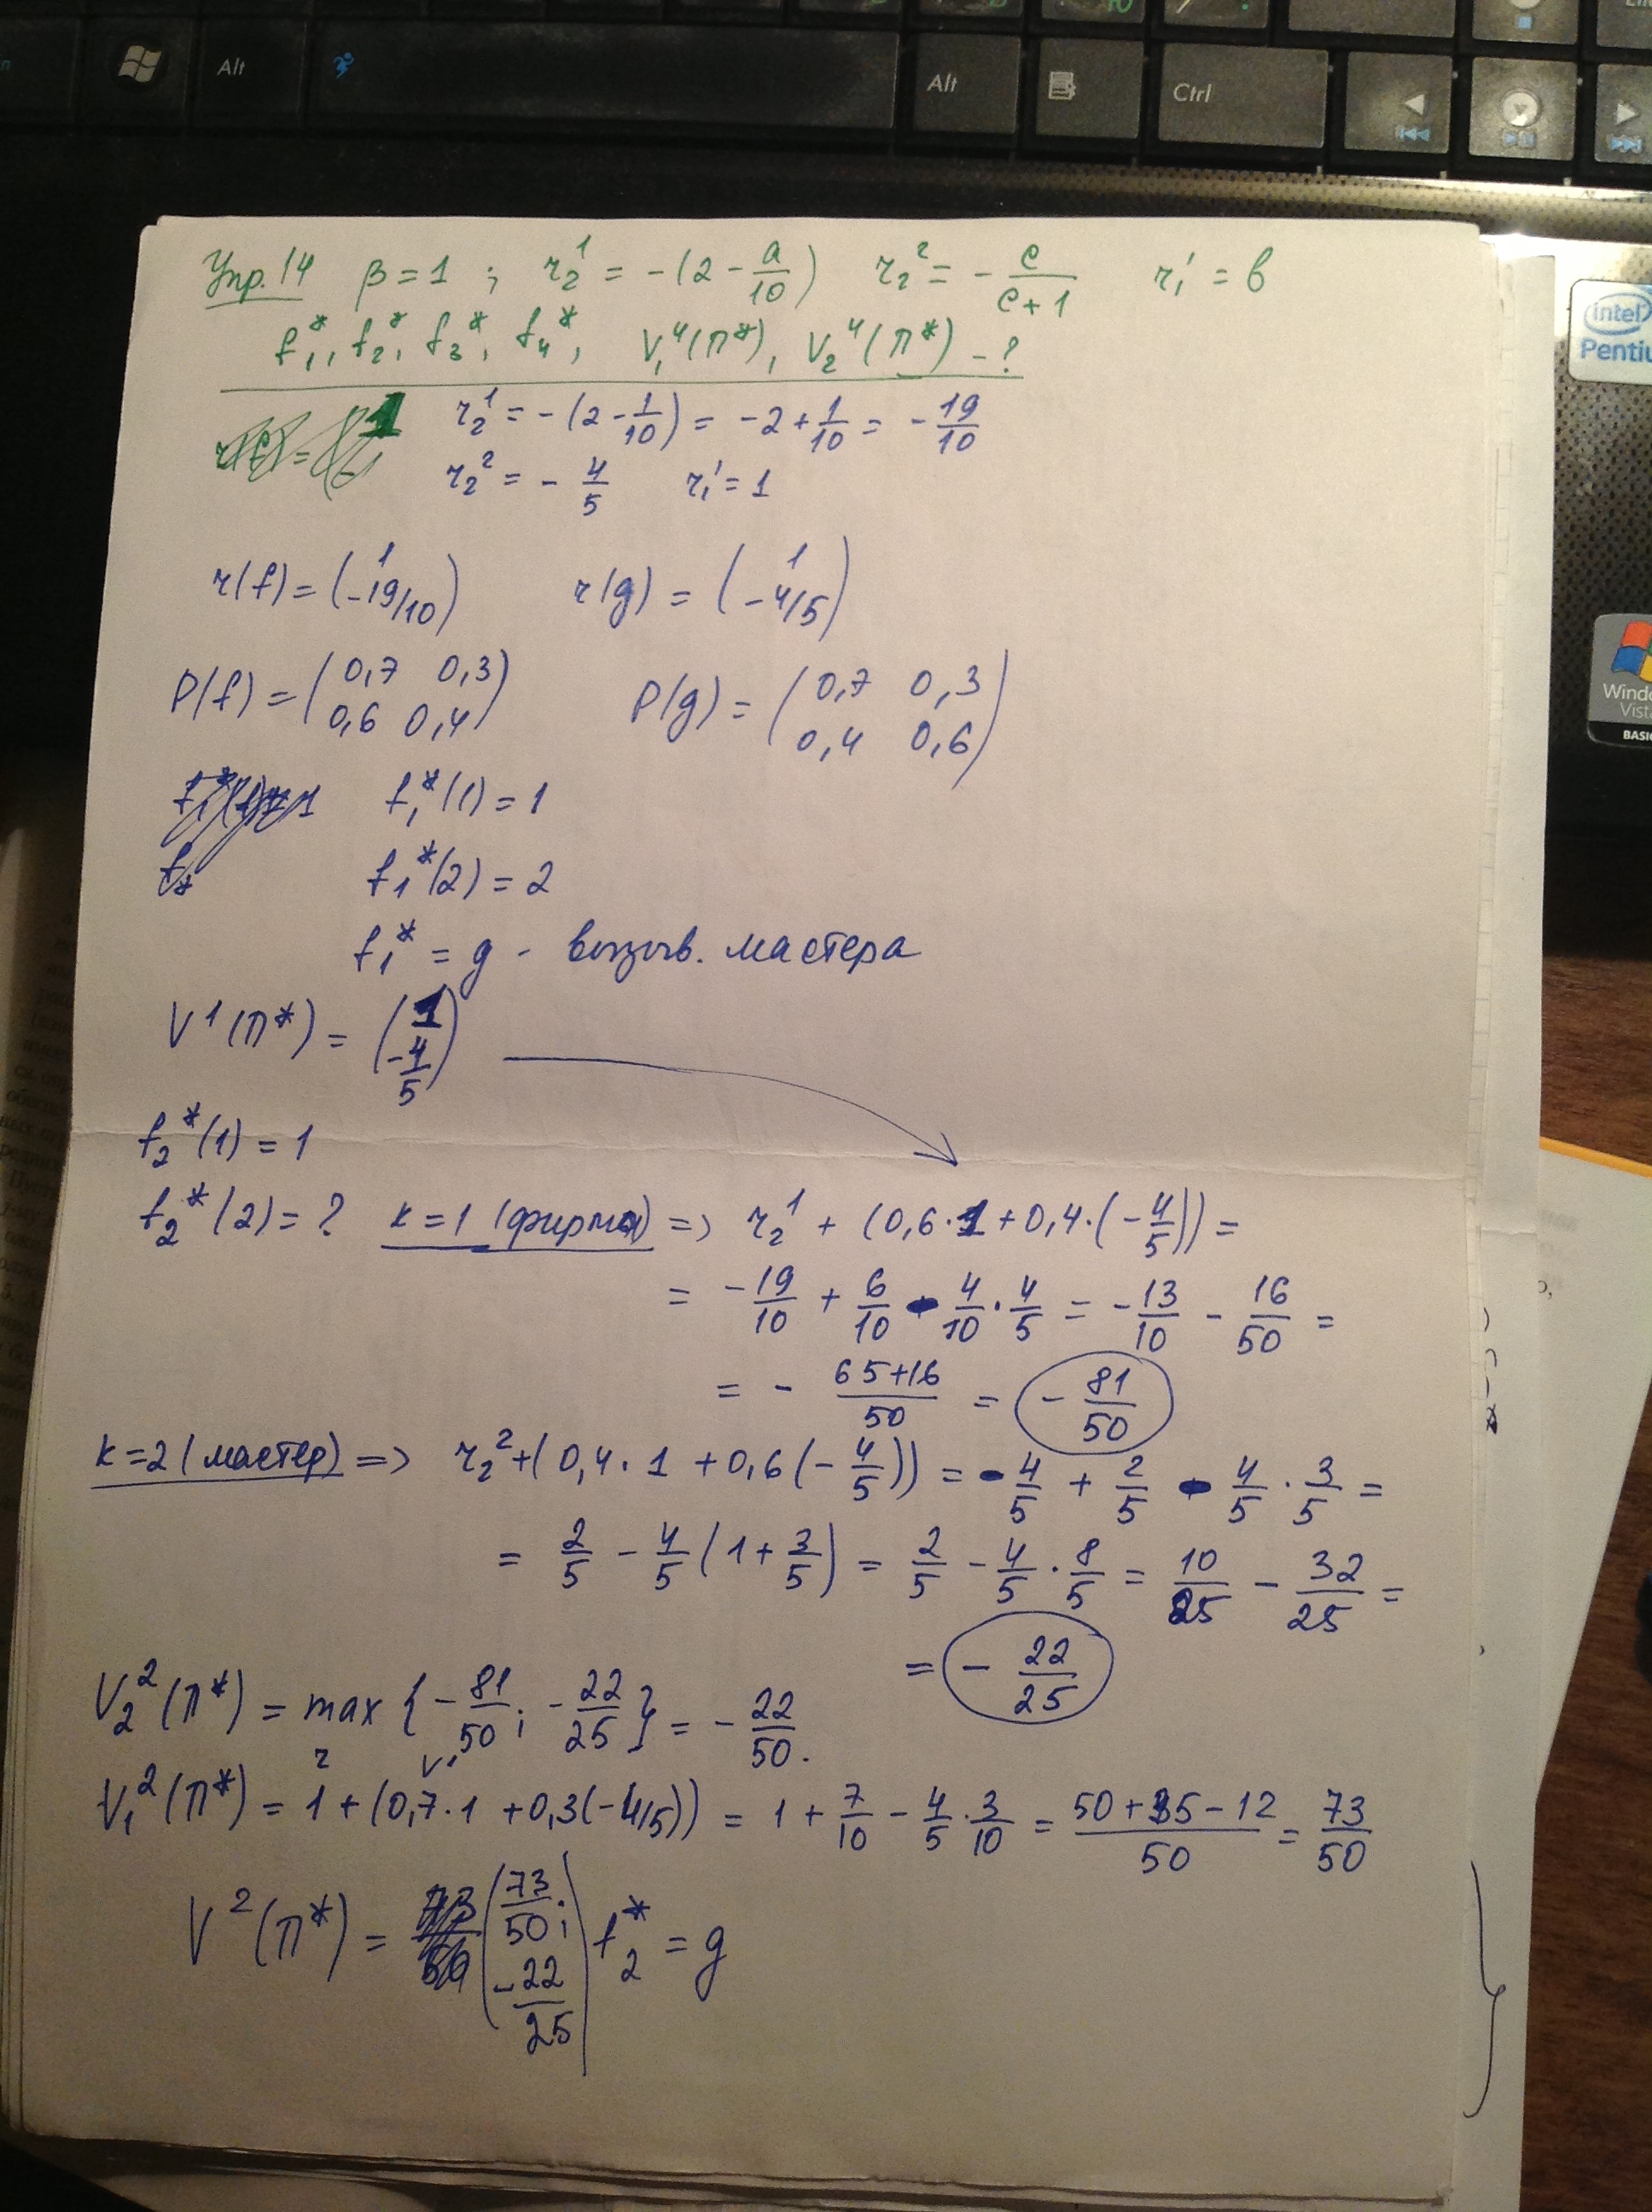 Alt
Alt
Ctrl
intel
Pentiu
Windo
Vista
BASIC
Упр. 14 β = 1 ; r₂¹ = -(2 - a/10) r₂² = - c/(c+1) r₁¹ = b
f₁*, f₂*, f₃*, f₄*, V₁⁴(π*), V₂⁴(π*) - ?
r₂¹ = -(2 - 1/10) = -2 + 1/10 = - 19/10
r₂² = - 4/5 r₁¹ = 1
r(f) = (1 -19/10) r(g) = (1 -4/5)
P(f) = (0,7 0,3 0,6 0,4) P(g) = (0,7 0,3 0,4 0,6)
f₁*(1) = 1
f₁*(2) = 2
f₁* = g - вызыв. мастера
V¹(π*) = (1 -4/5)
f₂*(1) = 1
f₂*(2) = ? k=1 (фирма) => r₂¹ + (0,6·1 + 0,4·(-4/5)) =
= -19/10 + 6/10 - 4/10 · 4/5 = -13/10 - 16/50 =
= - (65+16)/50 = - 81/50
k=2 (мастер) => r₂² + (0,4·1 + 0,6(-4/5)) = -4/5 + 2/5 - 4/5 · 3/5 =
= 2/5 - 4/5 (1 + 3/5) = 2/5 - 4/5 · 8/5 = 10/25 - 32/25 =
= - 22/25
V₂²(π*) = max {-81/50; -22/25} = - 22/50.
V₁²(π*) = 1 + (0,7·1 + 0,3(-4/5)) = 1 + 7/10 - 4/5 · 3/10 = (50+35-12)/50 = 73/50
V²(π*) = (73/50; -22/25) f₂* = g